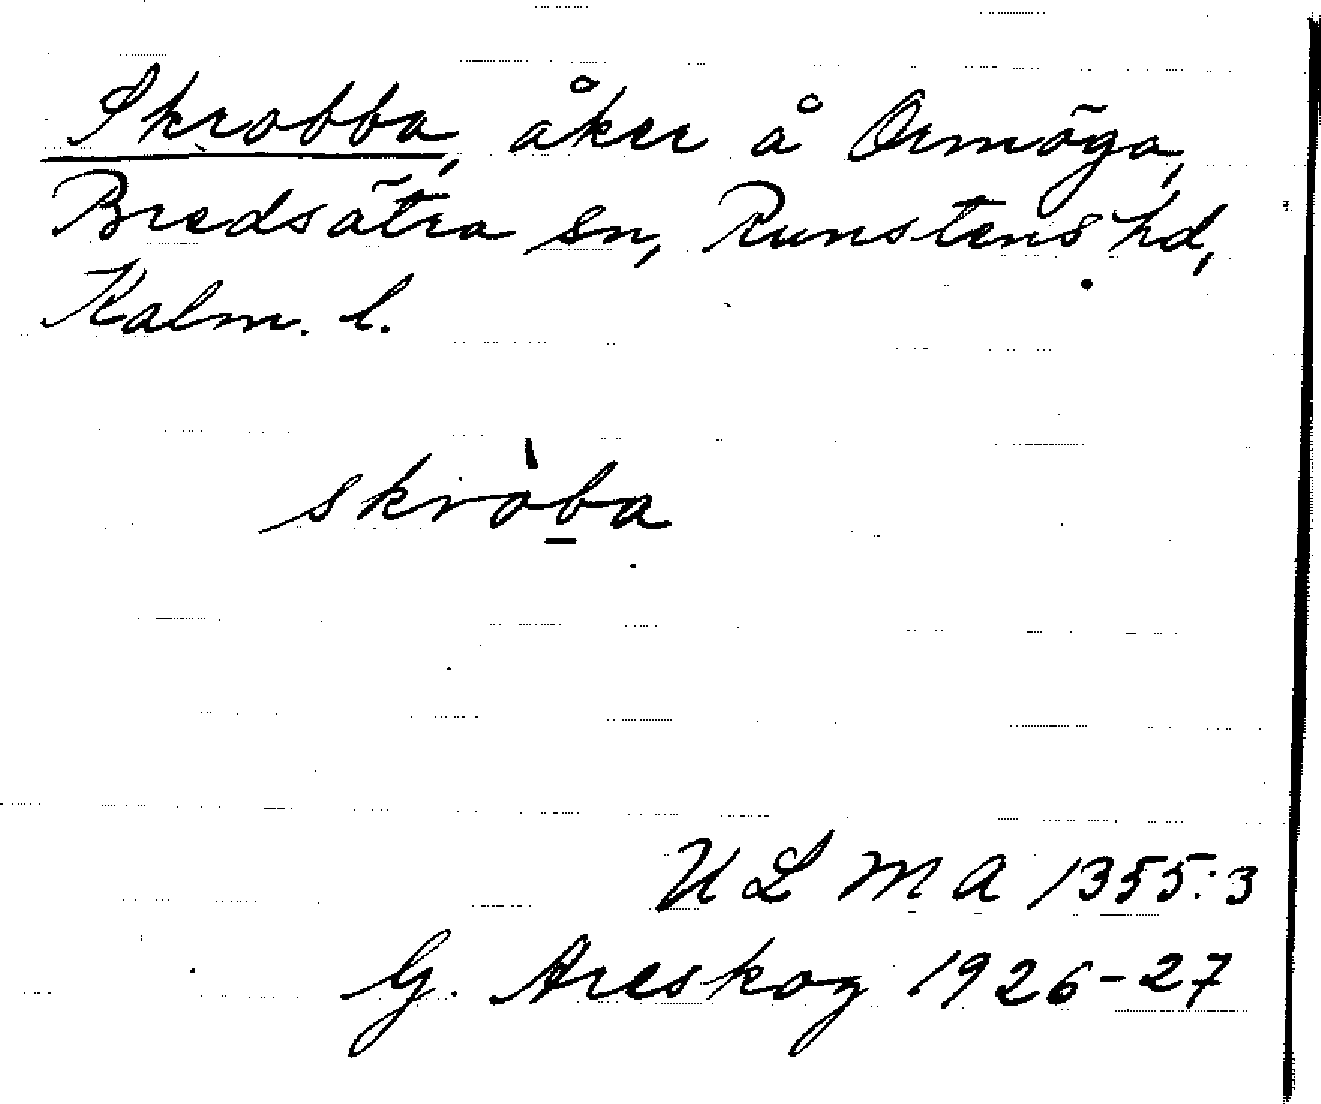 Skrobba, åker å Ormöga,
Bredsätra sn, Runstens hd,
Kalm. l.
skròba
ULMA 1355:3
G. Areskog 1926-27